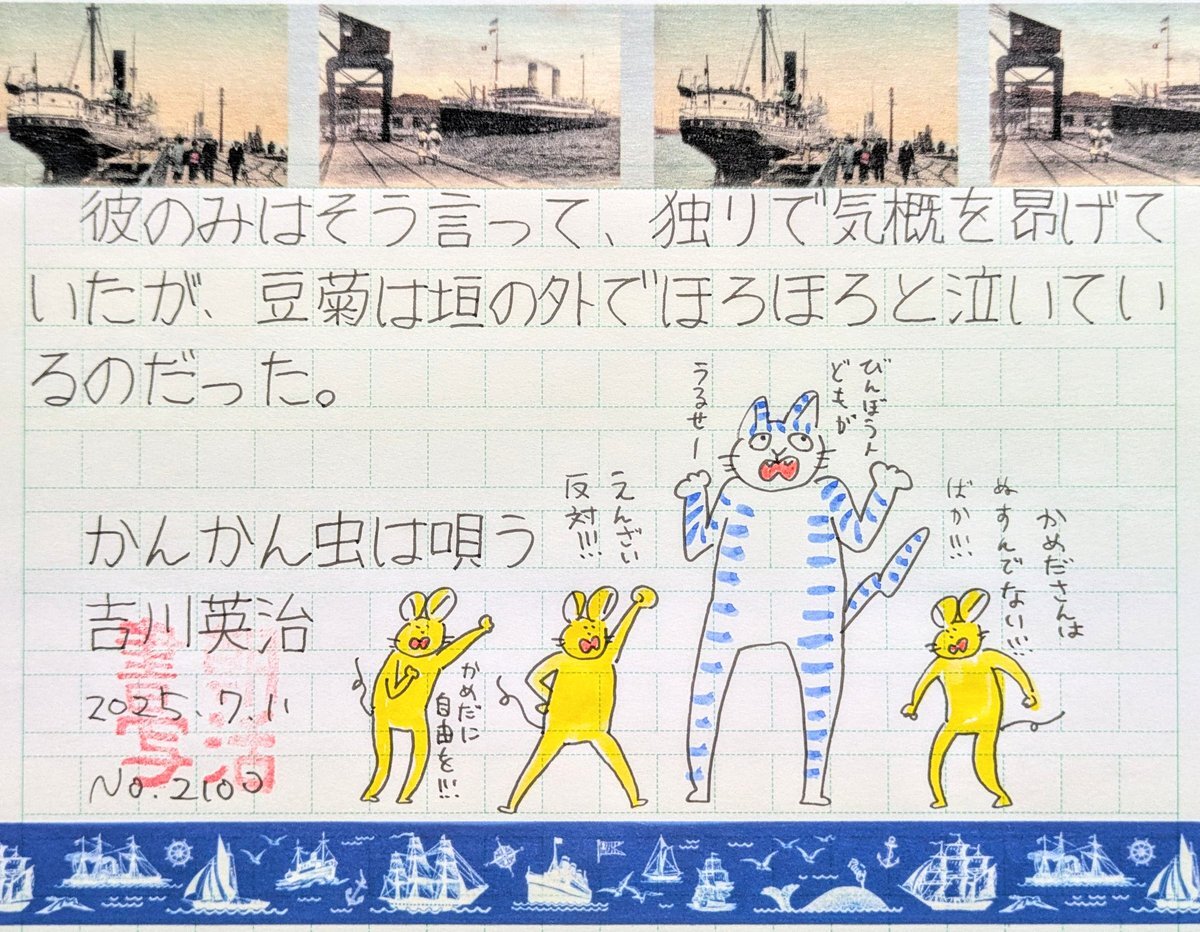 彼のみはそう言って、独りで気概を昂げて
いたが、豆菊は垣の外でほろほろと泣いてい
るのだった。
かんかん虫は唄う
吉川英治
2025.7.11
No.2100
びんぼう人
どもが
うるせー
えんざい
反対!!!
かめださんは
ぬすんでない!!!
ばか!!!
かめだに
自由を!!!